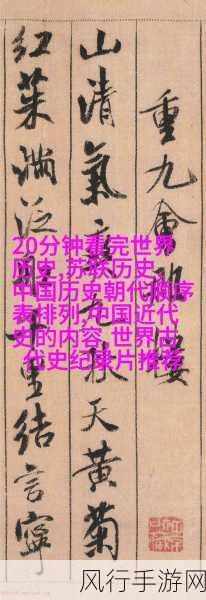 重九會郡樓
山清氣爽九秋天黄菊
紅茱滿泛里結言寧
20分钟看完世界
历史,苏联历史,
中国历史朝代顺序
表排列,中国近代
史的内容,世界古
代史纪录片推荐
风行手游网